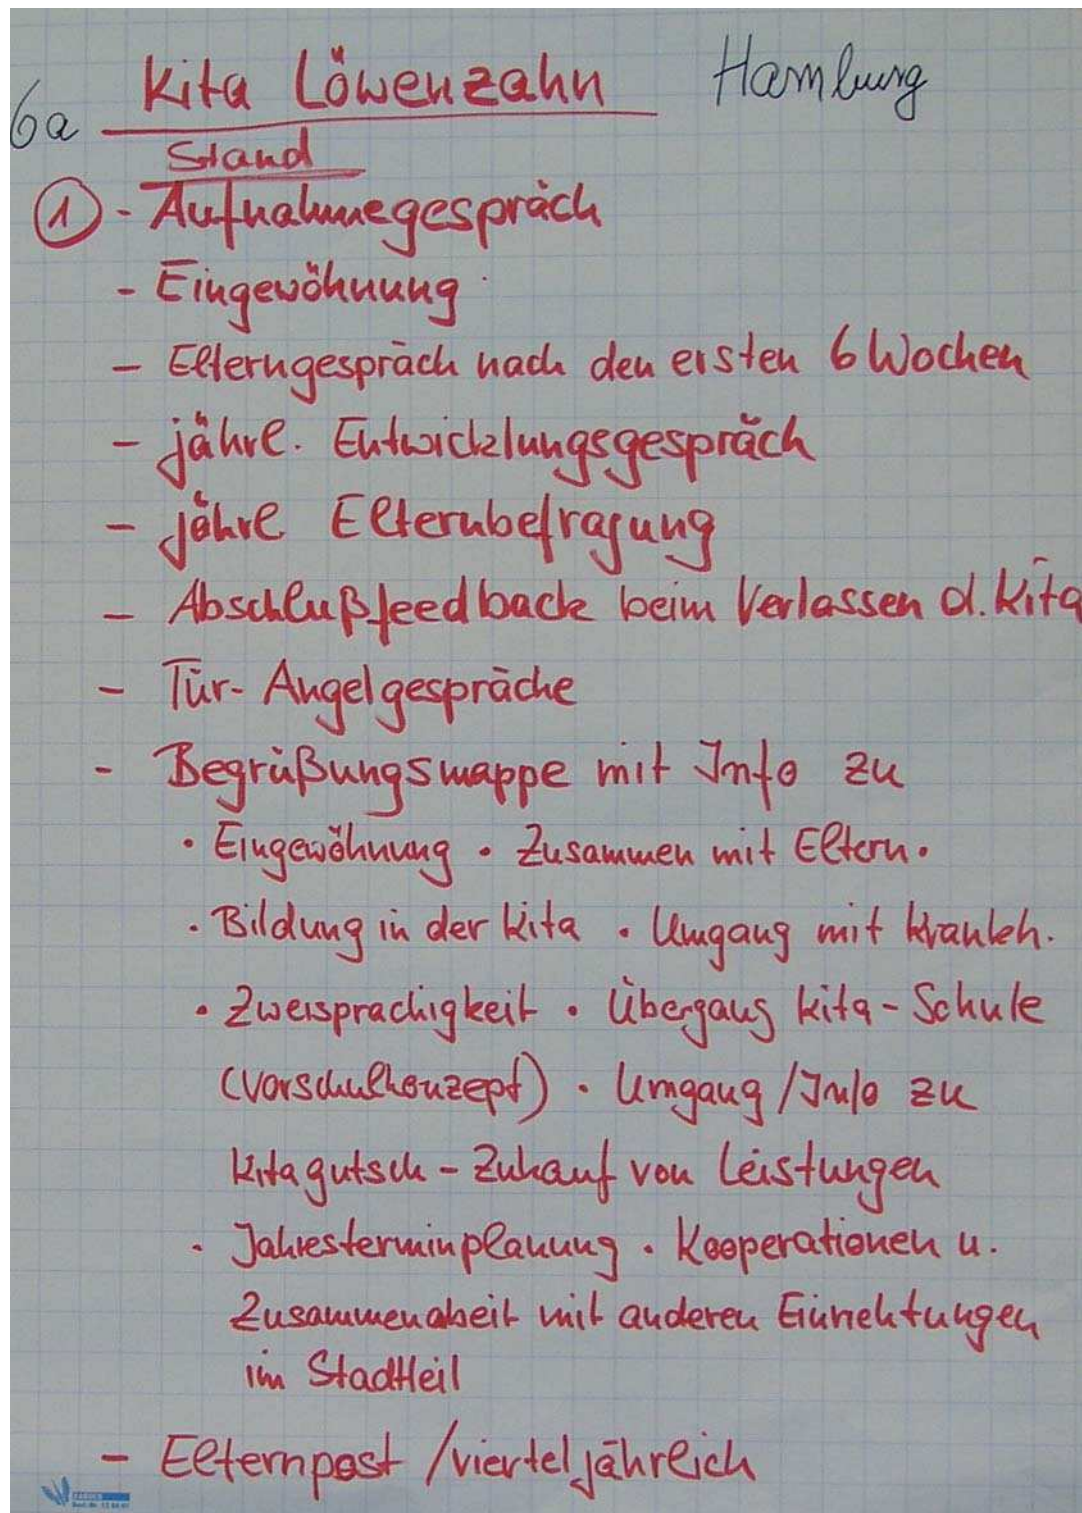 6a Kita Löwenzahn Hamburg
Stand
① - Aufnahmegespräch
- Eingewöhnung
- Elterngespräch nach den ersten 6 Wochen
- jährl. Entwicklungsgespräch
- jährl Elternbefragung
- Abschlußfeedback beim Verlassen d. Kita
- Tür- Angelgespräche
- Begrüßungsmappe mit Info zu
• Eingewöhnung • Zusammen mit Eltern •
• Bildung in der Kita • Umgang mit Krankh.
• Zweisprachigkeit • Übergang Kita - Schule
(Vorschulkonzept) • Umgang / Info zu
Kitagutsch - Zukauf von Leistungen
• Jahresterminplanung • Kooperationen u.
Zusammenabeit mit anderen Einrichtungen
im Stadtteil
- Elternpost / vierteljährlich